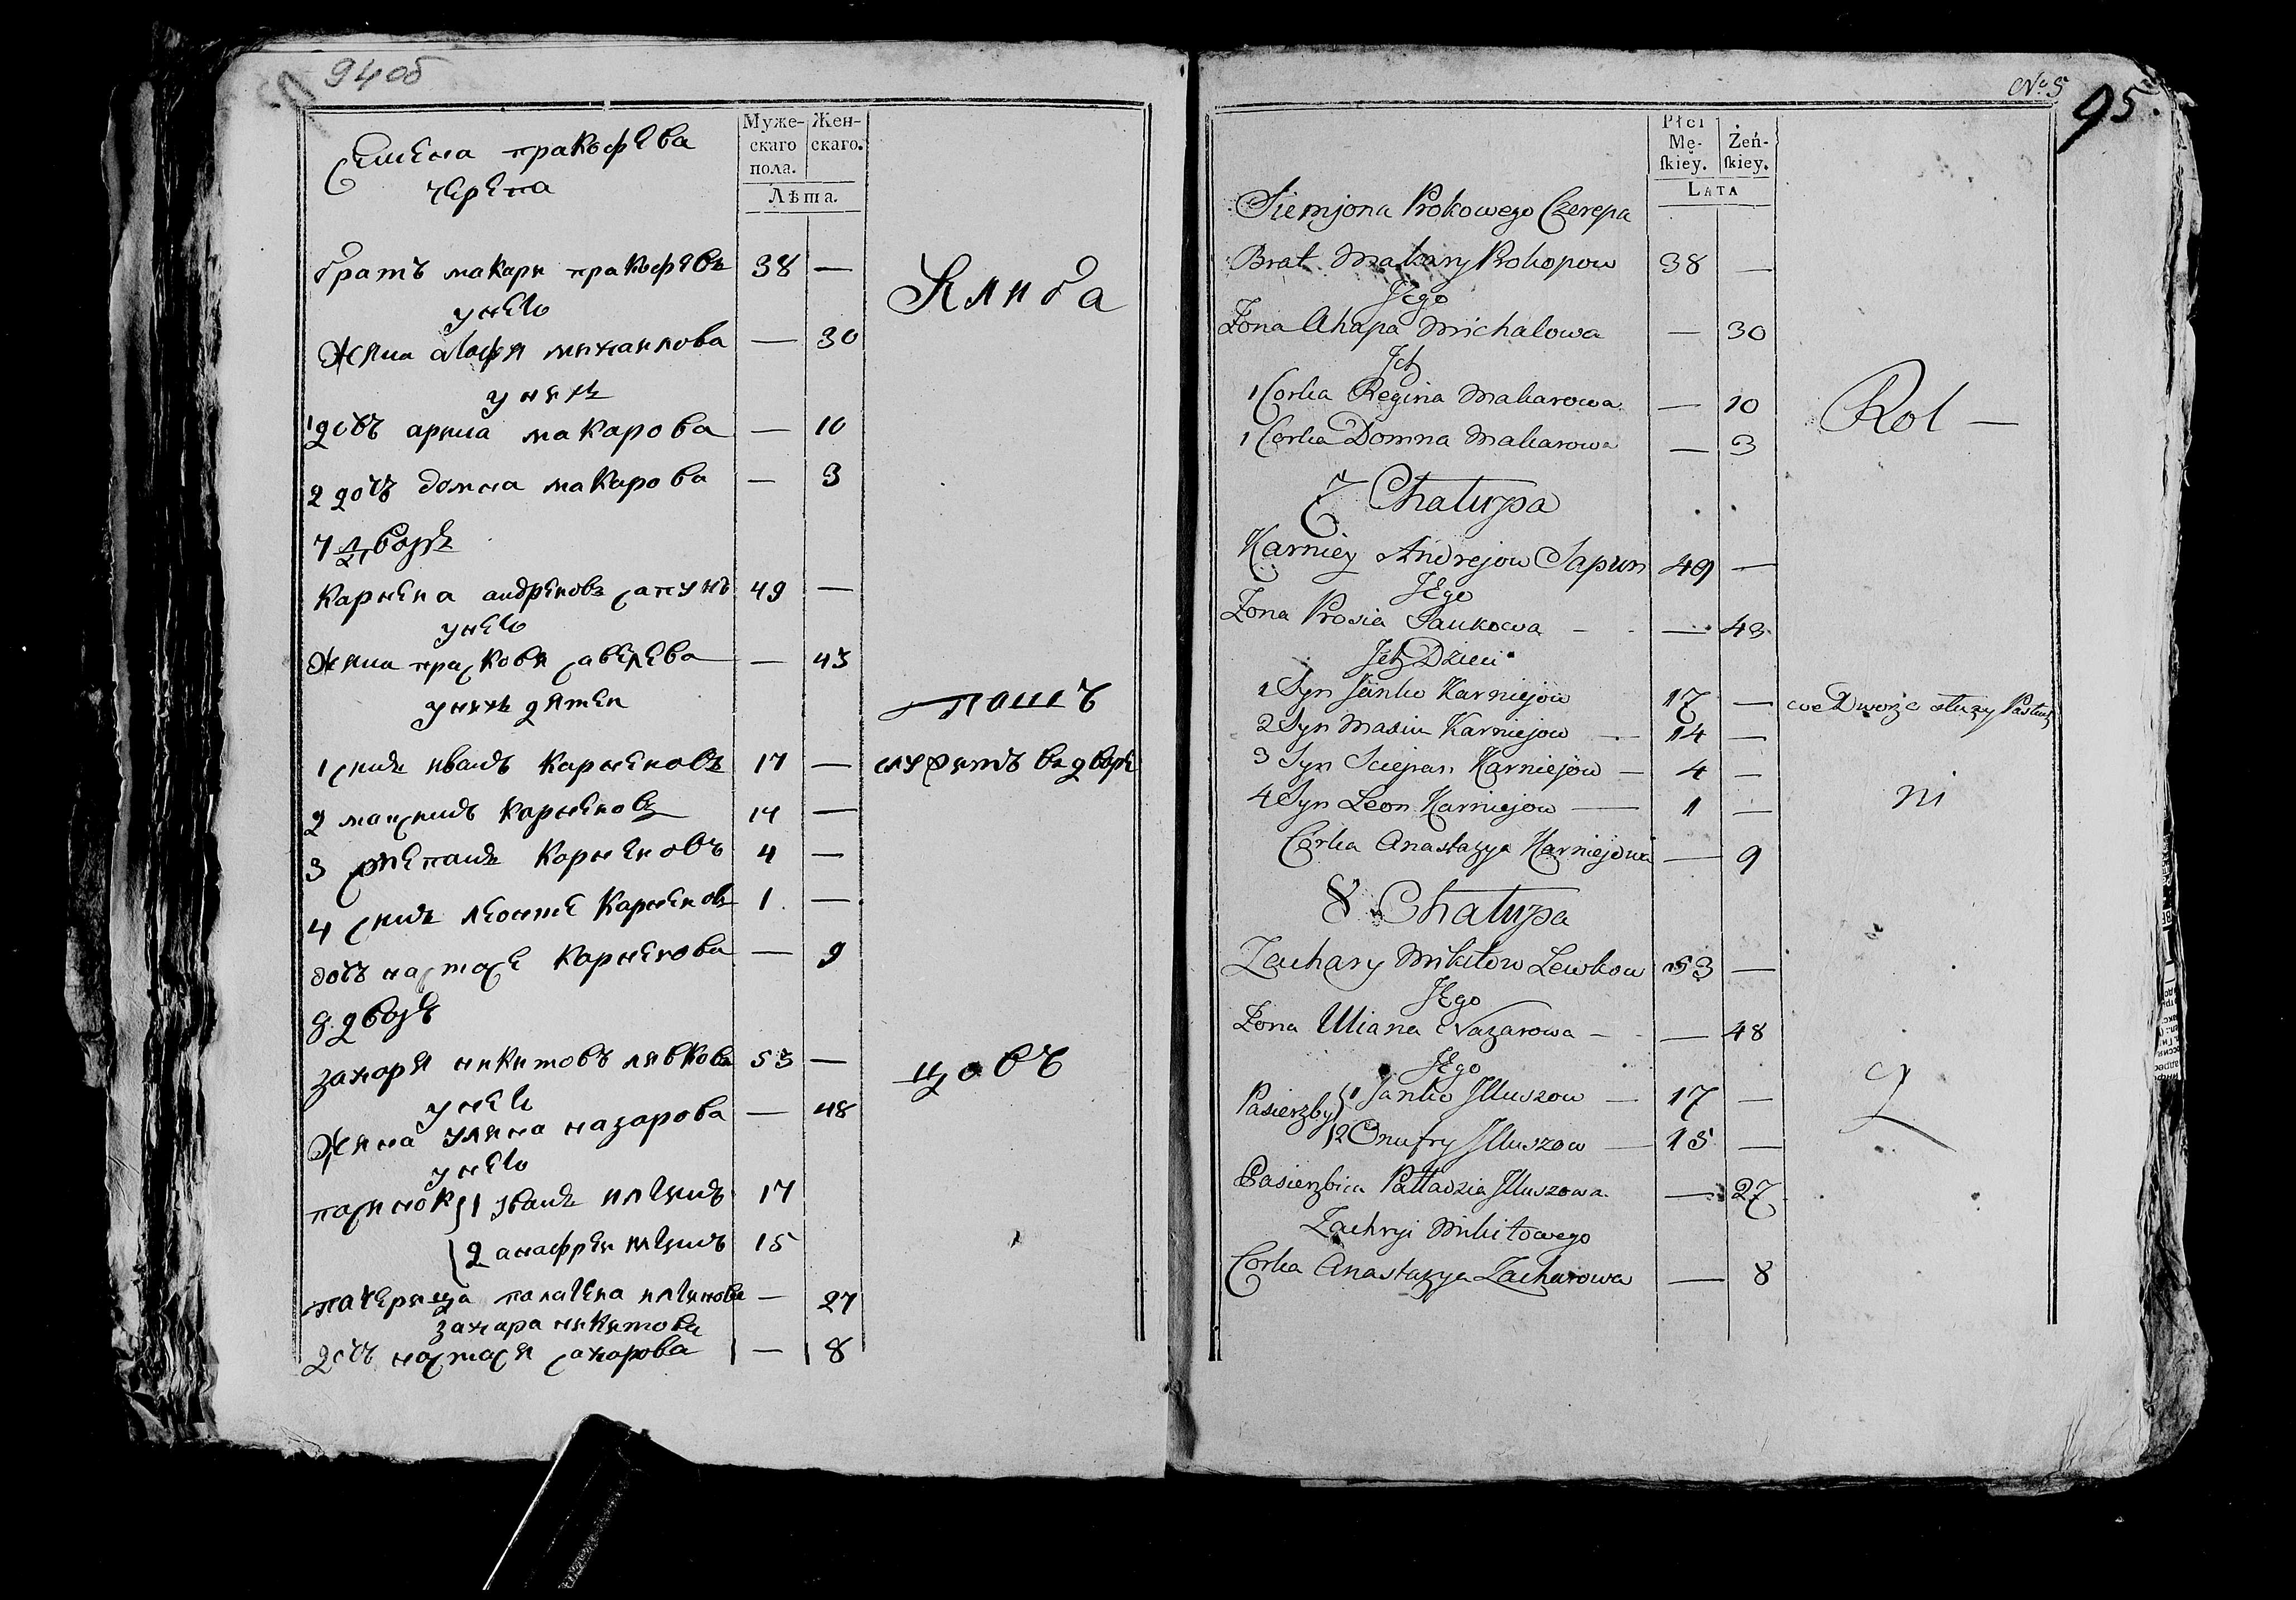 94 об
Муже-
скаго
пола.
Жен-
скаго.
Лѣта.
Семена пракофева
черепа
братъ макари пракофевъ 38 —
унего
жена агафя михаилова — 30
Хлиба
у нихъ
1 доч арина макарова — 10
2 дочъ домна макарова — 3
7 дворъ
карнеиа андреиовъ сапунъ 49 —
унего
жена прасковя савелева — 43
унихъ детеи
пашъ
1 синъ иванъ карнеиовъ 17 — служитъ въ дворе
2 максимъ карнеиовъ 14 —
3 степанъ карнеиовъ 4 —
4 синъ леонте карнеиовъ 1 —
дочъ настасе карнеиова — 9
8 дворъ
захаря никитовъ левковъ 53 —
цовъ
унего
жена уляна назарова — 48
унего
пасинок 1 иванъ илгинъ 17
2 анафреи илгинъ 15
пачерица палагеиа илгинова — 27
захара никитова
дочъ настася захарова — 8
№ 5
95.
Płci
Mę-
ſkiey.
Żeń-
ſkiey.
LATA
Siemjona Prokowego Czerepa
Brat Makary Prokopow 38 —
Jego
Zona Ahapa Michalowa — 30
Jch
1 Corka Regina Makarowa — 10
Rol —
1 Corka Domna Makarowa — 3
7 Chałupa
Karniey Andrejow Sapun 49 —
JEgo
Zona Prosia Saukowa — 43
Jch Dzieci
1 Syn Janko Karniejow 17 — we Dworze służy
2 Syn Maxim Karniejow — 14 —
3 Syn Sciepan Karniejow — 4 —
ni
4 Syn Leon Karniejow — 1 —
Corka Anastazya Karniejowa — 9
8 Chałupa
Zachary Mikitow Lewkow 53 —
JEgo
Zona Uliana Nazarowa — — 48
JEgo
Pasierzby 1 Janko Jlluszow — 17 —
2 Onufry Jlluszow — 15 —
Pasierzbica Palladzia Jlluszowa — 27
Zachryi Mikitowego
Corka Anastazya Zacharowa — 8